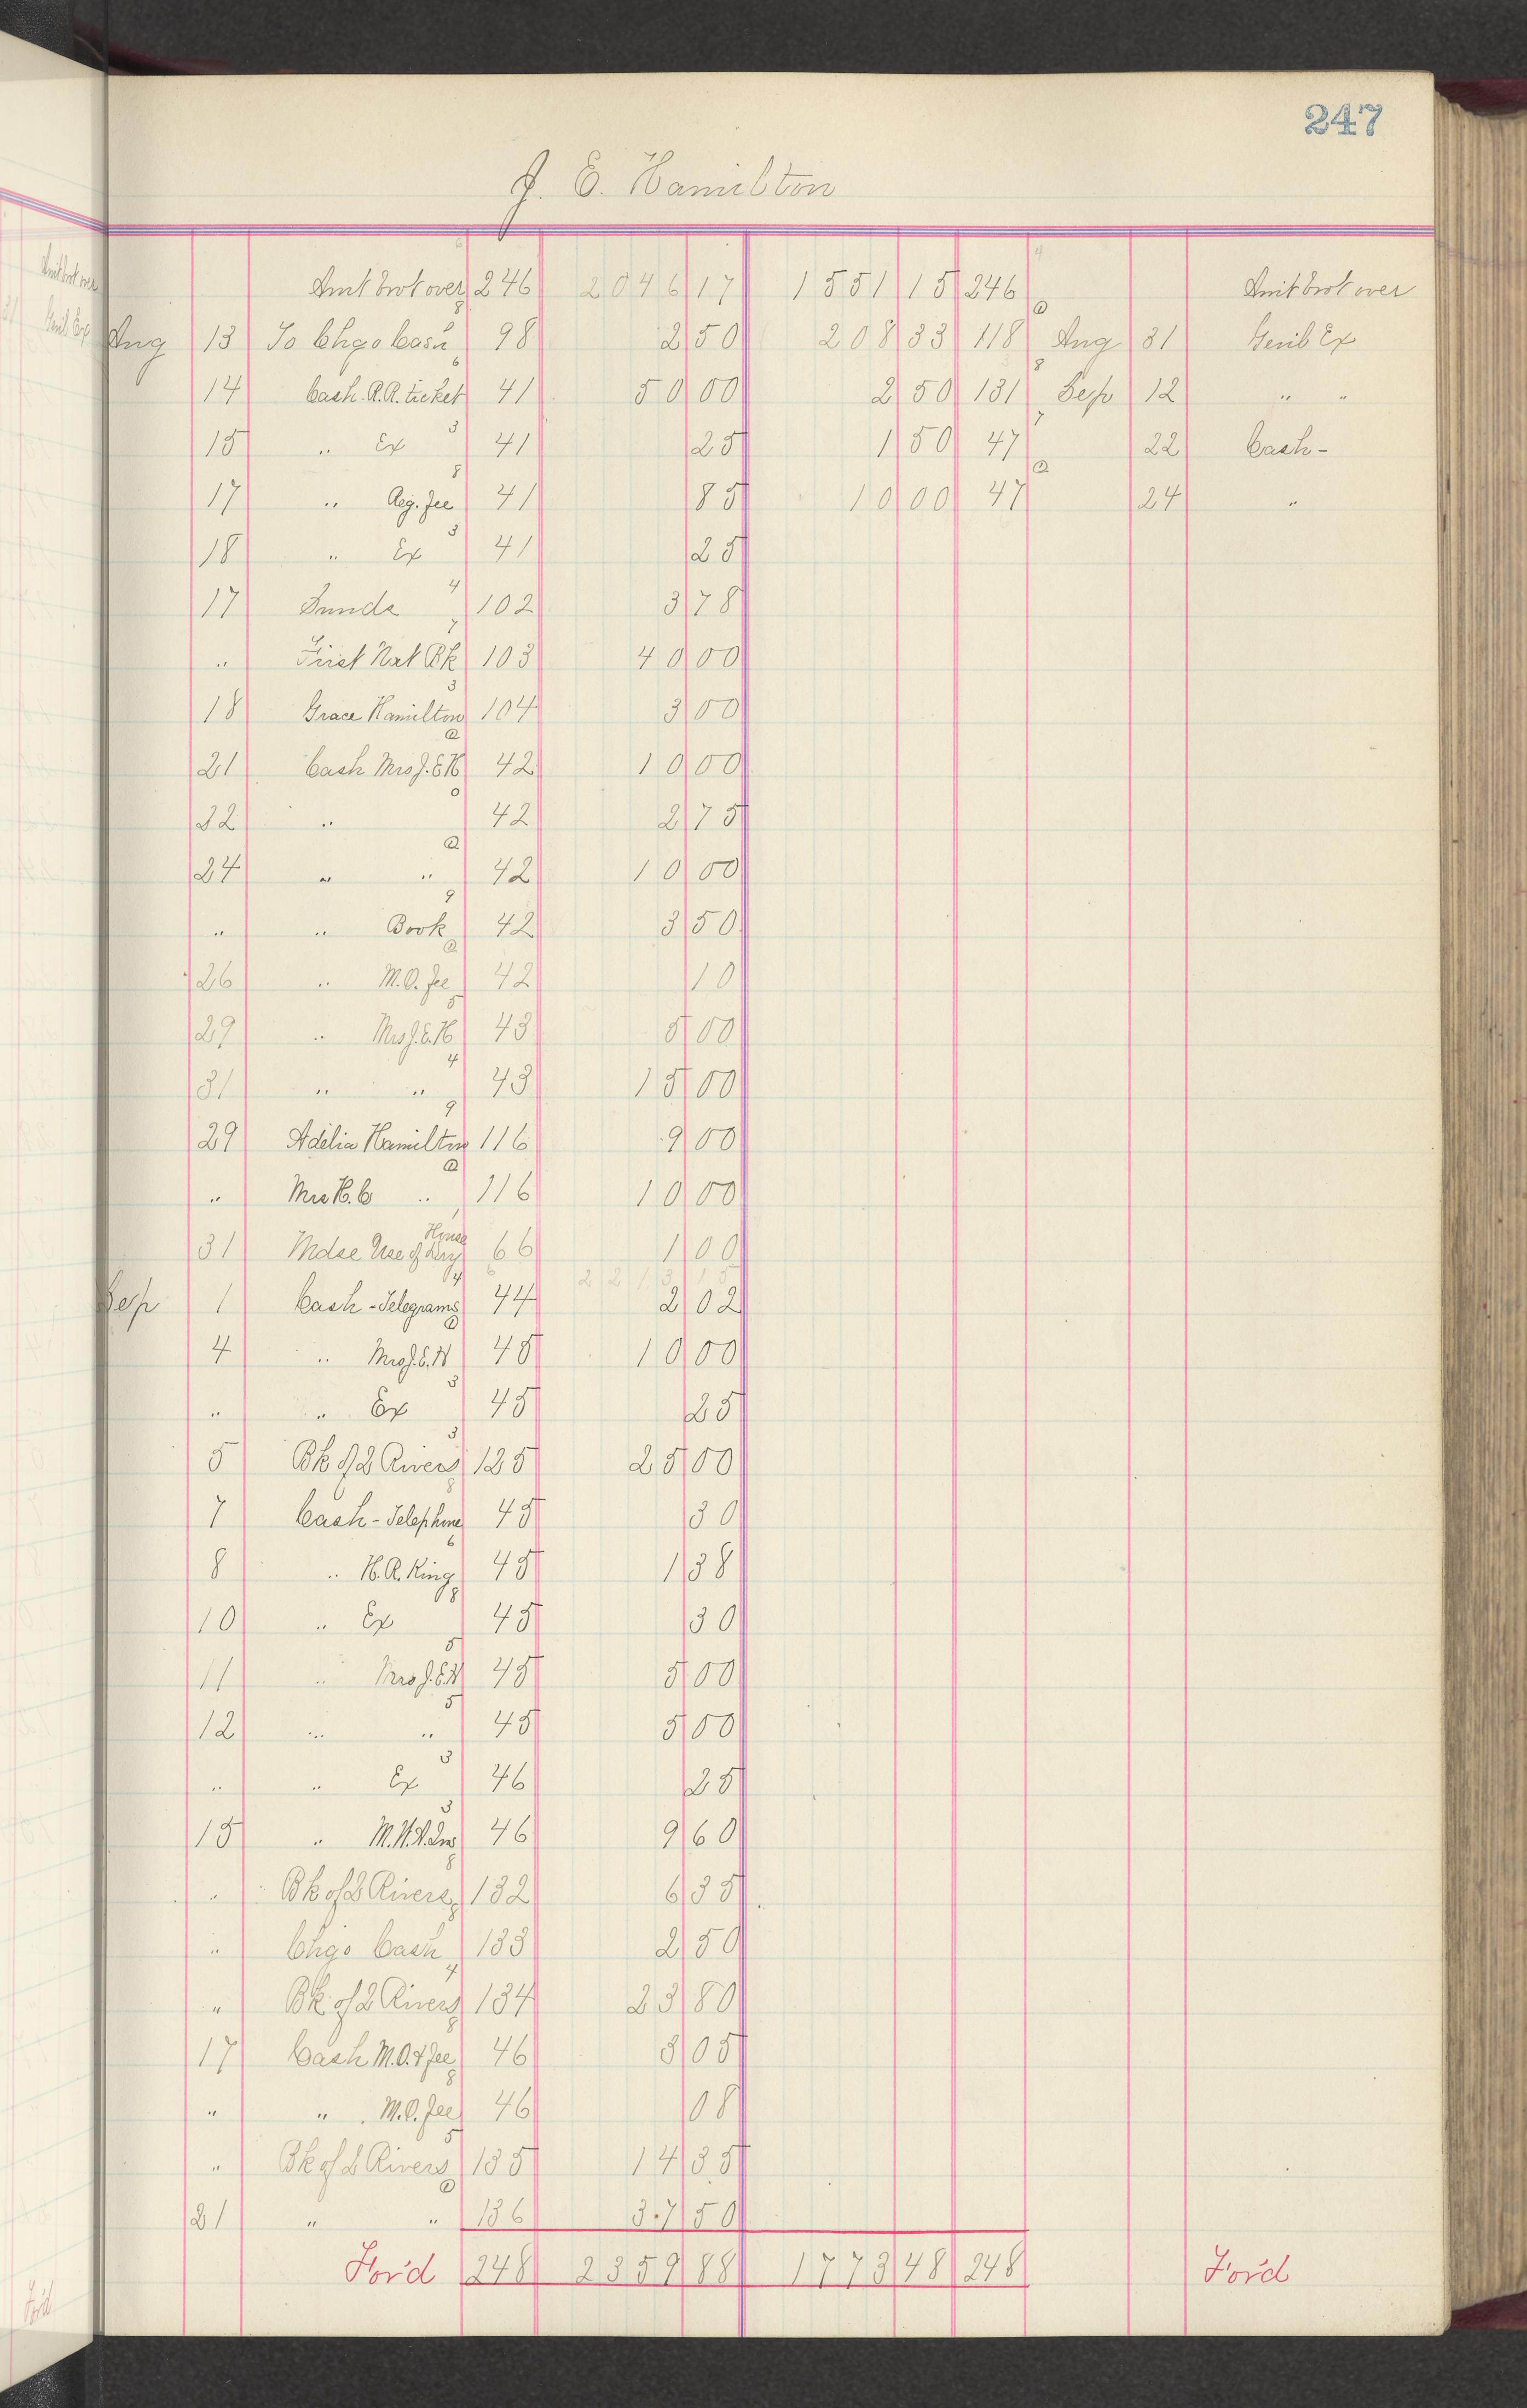 247
J. E. Hamilton
Amt brot over 246 2046 17 1551 15 246 Amt brot over
Aug 13 To Chgo Cash 98 2 50 208 33 118 Aug 31 Genl Ex
14 Cash R.R. ticket 41 50 00 2 50 131 Sep 12 " "
15 " Ex 41 25 1 50 47 22 Cash -
17 " Reg. fee 41 85 10 00 47 24 "
18 " Ex 41 25
17 Sunds 102 3 78
" First Nat Bk 103 40 00
18 Grace Hamilton 104 3 00
21 Cash Mrs J. E H 42 10 00
22 " 42 2 75
24 " " 42 10 00
" " Book 42 3 50
26 " M.O. fee 42 10
29 " Mrs J. E. H 43 5 00
31 " " 43 15 00
29 Adelia Hamilton 116 9 00
" Mrs H. C " 116 10 00
31 Mdse Use of Horse 66 1 00
2213 15
Sep 1 Cash - Telegrams 44 2 02
4 " Mrs J. E. H 45 10 00
" " Ex 45 25
5 Bk of 2 Rivers 125 25 00
7 Cash - Telephone 45 30
8 " H. R. King 45 1 38
10 " Ex 45 30
11 " Mrs J. E. H 45 5 00
12 " " 45 5 00
" " Ex 46 25
15 " M.W.A. Ins 46 9 60
" Bk of 2 Rivers 132 6 35
" Chgo Cash 133 2 50
" Bk of 2 Rivers 134 23 80
17 Cash M.O. & fee 46 3 05
" " M.O. fee 46 08
" Bk of 2 Rivers 135 14 35
21 " " 136 37 50
For'd 248 2359 88 1773 48 248 For'd